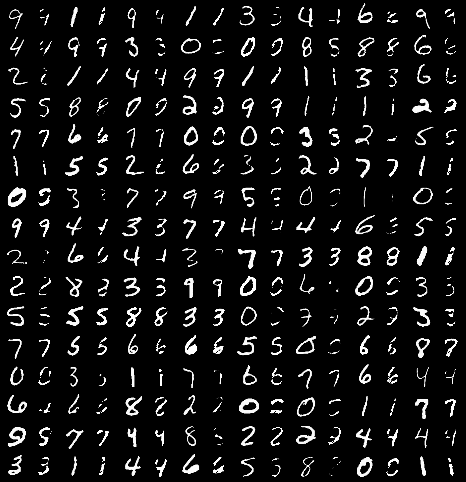 9 9 1 1 9 9 1 1 3 3 4 4 6 9 9
4 4 9 9 3 3 0 0 0 8 5 8 8 6
2 1 1 4 4 9 9 1 1 1 1 3 3 6 6
5 5 8 8 0 0 2 2 9 9 1 1 1 1 2 2
7 7 6 6 7 7 0 0 0 3 3 2 5 5
1 1 5 5 2 6 6 3 2 2 7 7 1 1
0 0 3 7 7 9 9 5 0 1 0
9 9 4 4 3 3 7 7 4 4 4 4 6 5 5
2 6 6 4 4 3 7 7 3 3 8 8 1 1
2 2 8 8 3 3 9 9 0 0 6 0 3 3
5 5 5 5 8 8 3 3 0 7 7 2 2 3 3
7 7 5 5 6 6 6 6 5 5 0 6 6 8 7
0 0 3 1 1 7 7 6 6 7 7 6 6 4 4
6 6 6 8 2 2 0 0 1 1 7 7
9 5 7 7 4 4 8 2 2 2 2 4 4 4 4
3 3 1 1 4 4 6 6 5 8 0 0 1 1